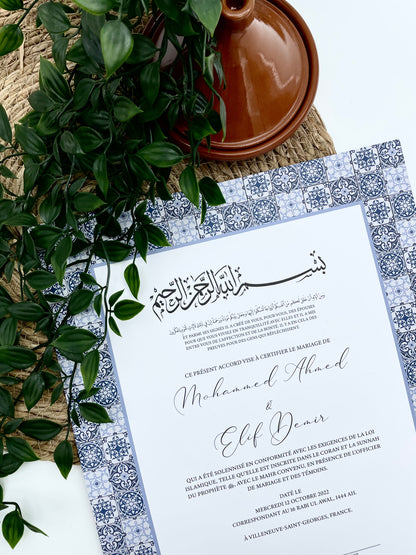 بسم الله الرحمن الرحيم
ومن آياته أن خلق لكم من أنفسكم أزواجا لتسكنوا إليها وجعل بينكم مودة ورحمة إن في ذلك لآيات لقوم يتفكرون
ET PARMI SES SIGNES IL A CRÉÉ DE VOUS, POUR VOUS, DES ÉPOUSES
POUR QUE VOUS VIVIEZ EN TRANQUILLITÉ AVEC ELLES ET IL A MIS
ENTRE VOUS DE L'AFFECTION ET DE LA BONTÉ. IL Y A EN CELA DES
PREUVES POUR DES GENS QUI RÉFLÉCHISSENT.
CE PRÉSENT ACCORD VISE À CERTIFIER LE MARIAGE DE
Mohammed Ahmed
&
Elif Demir
QUI A ÉTÉ SOLENNISÉ EN CONFORMITÉ AVEC LES EXIGENCES DE LA LOI
ISLAMIQUE, TELLE QU'ELLE EST INSCRITE DANS LE CORAN ET LA SUNNAH
DU PROPHÈTE ﷺ, AVEC LE MAHR CONVENU, EN PRÉSENCE DE L'OFFICIER
DE MARIAGE ET DES TÉMOINS.
DATÉ LE
MERCREDI 12 OCTOBRE 2022
CORRESPONDANT AU 16 RABI UL AWAL, 1444 AH.
À VILLENEUVE-SAINT-GEORGES, FRANCE.